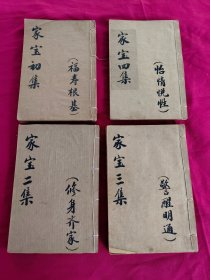 家宝初集
(福寿根基)
家宝四集
(怡情悦性)
家宝二集
(修身齐家)
家宝三集
(警醒明通)